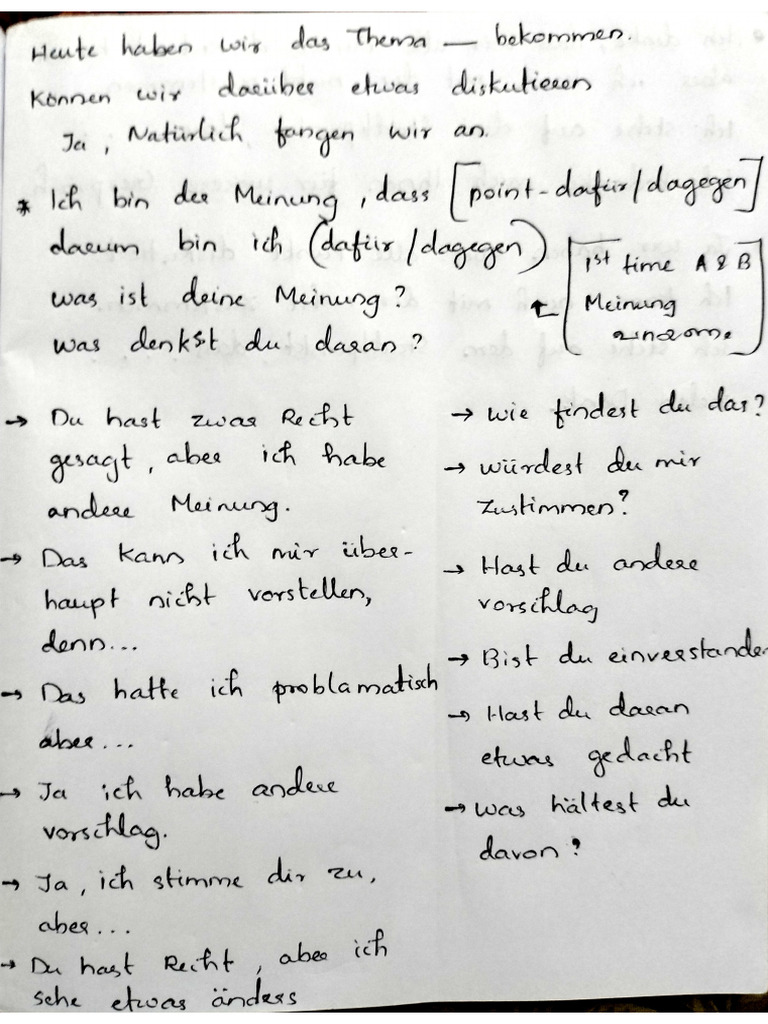 Heute haben wir das Thema — bekommen.
Können wir darüber etwas diskutieren
Ja, Natürlich fangen wir an.
* Ich bin der Meinung, dass [point-dafür/dagegen]
darum bin ich (dafür/dagegen)
was ist deine Meinung?
was denkst du daran?
← [1st time A & B
Meinung
പറനാൽ]
→ Du hast zwar Recht
gesagt, aber ich habe
andere Meinung.
→ Das kann ich mir über-
haupt nicht vorstellen,
denn...
→ Das hatte ich problamatisch
aber...
→ Ja ich habe andere
vorschlag.
→ Ja, ich stimme dir zu,
aber...
→ Du hast Recht, aber ich
sehe etwas änders
→ wie findest du das?
→ würdest du mir
zustimmen?
→ Hast du andere
vorschlag
→ Bist du einverstanden
→ Hast du daran
etwas gedacht
→ was hältest du
davon?